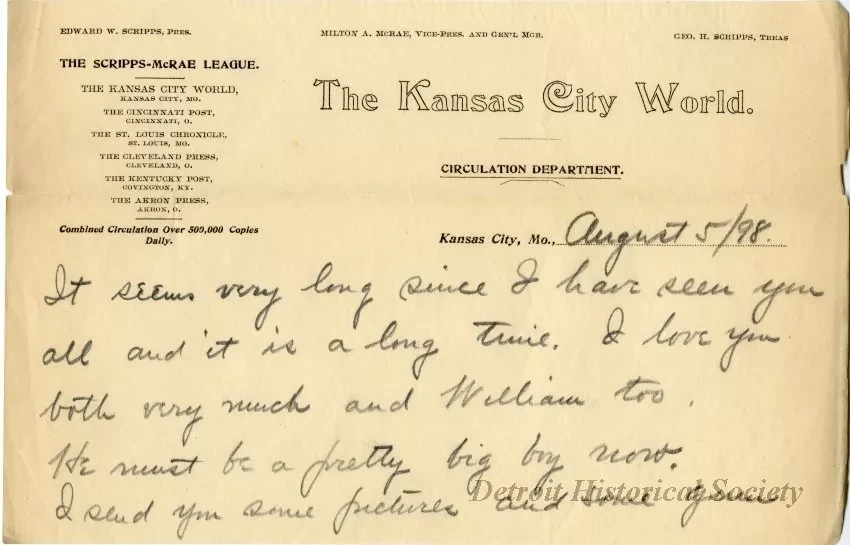 EDWARD W. SCRIPPS, PRES.
MILTON A. McRAE, VICE-PRES. AND GEN'L MGR.
GEO. H. SCRIPPS, TREAS
THE SCRIPPS-McRAE LEAGUE.
THE KANSAS CITY WORLD,
KANSAS CITY, MO.
THE CINCINNATI POST,
CINCINNATI, O.
THE ST. LOUIS CHRONICLE,
ST. LOUIS, MO.
THE CLEVELAND PRESS,
CLEVELAND, O.
THE KENTUCKY POST,
COVINGTON, KY.
THE AKRON PRESS,
AKRON, O.
Combined Circulation Over 500,000 Copies
Daily.
The Kansas City World.
CIRCULATION DEPARTMENT.
Kansas City, Mo., August 5/98.
It seems very long since I have seen you
all and it is a long time. I love you
both very much and William too.
He must be a pretty big boy now.
I send you some pictures and some
Detroit Historical Society